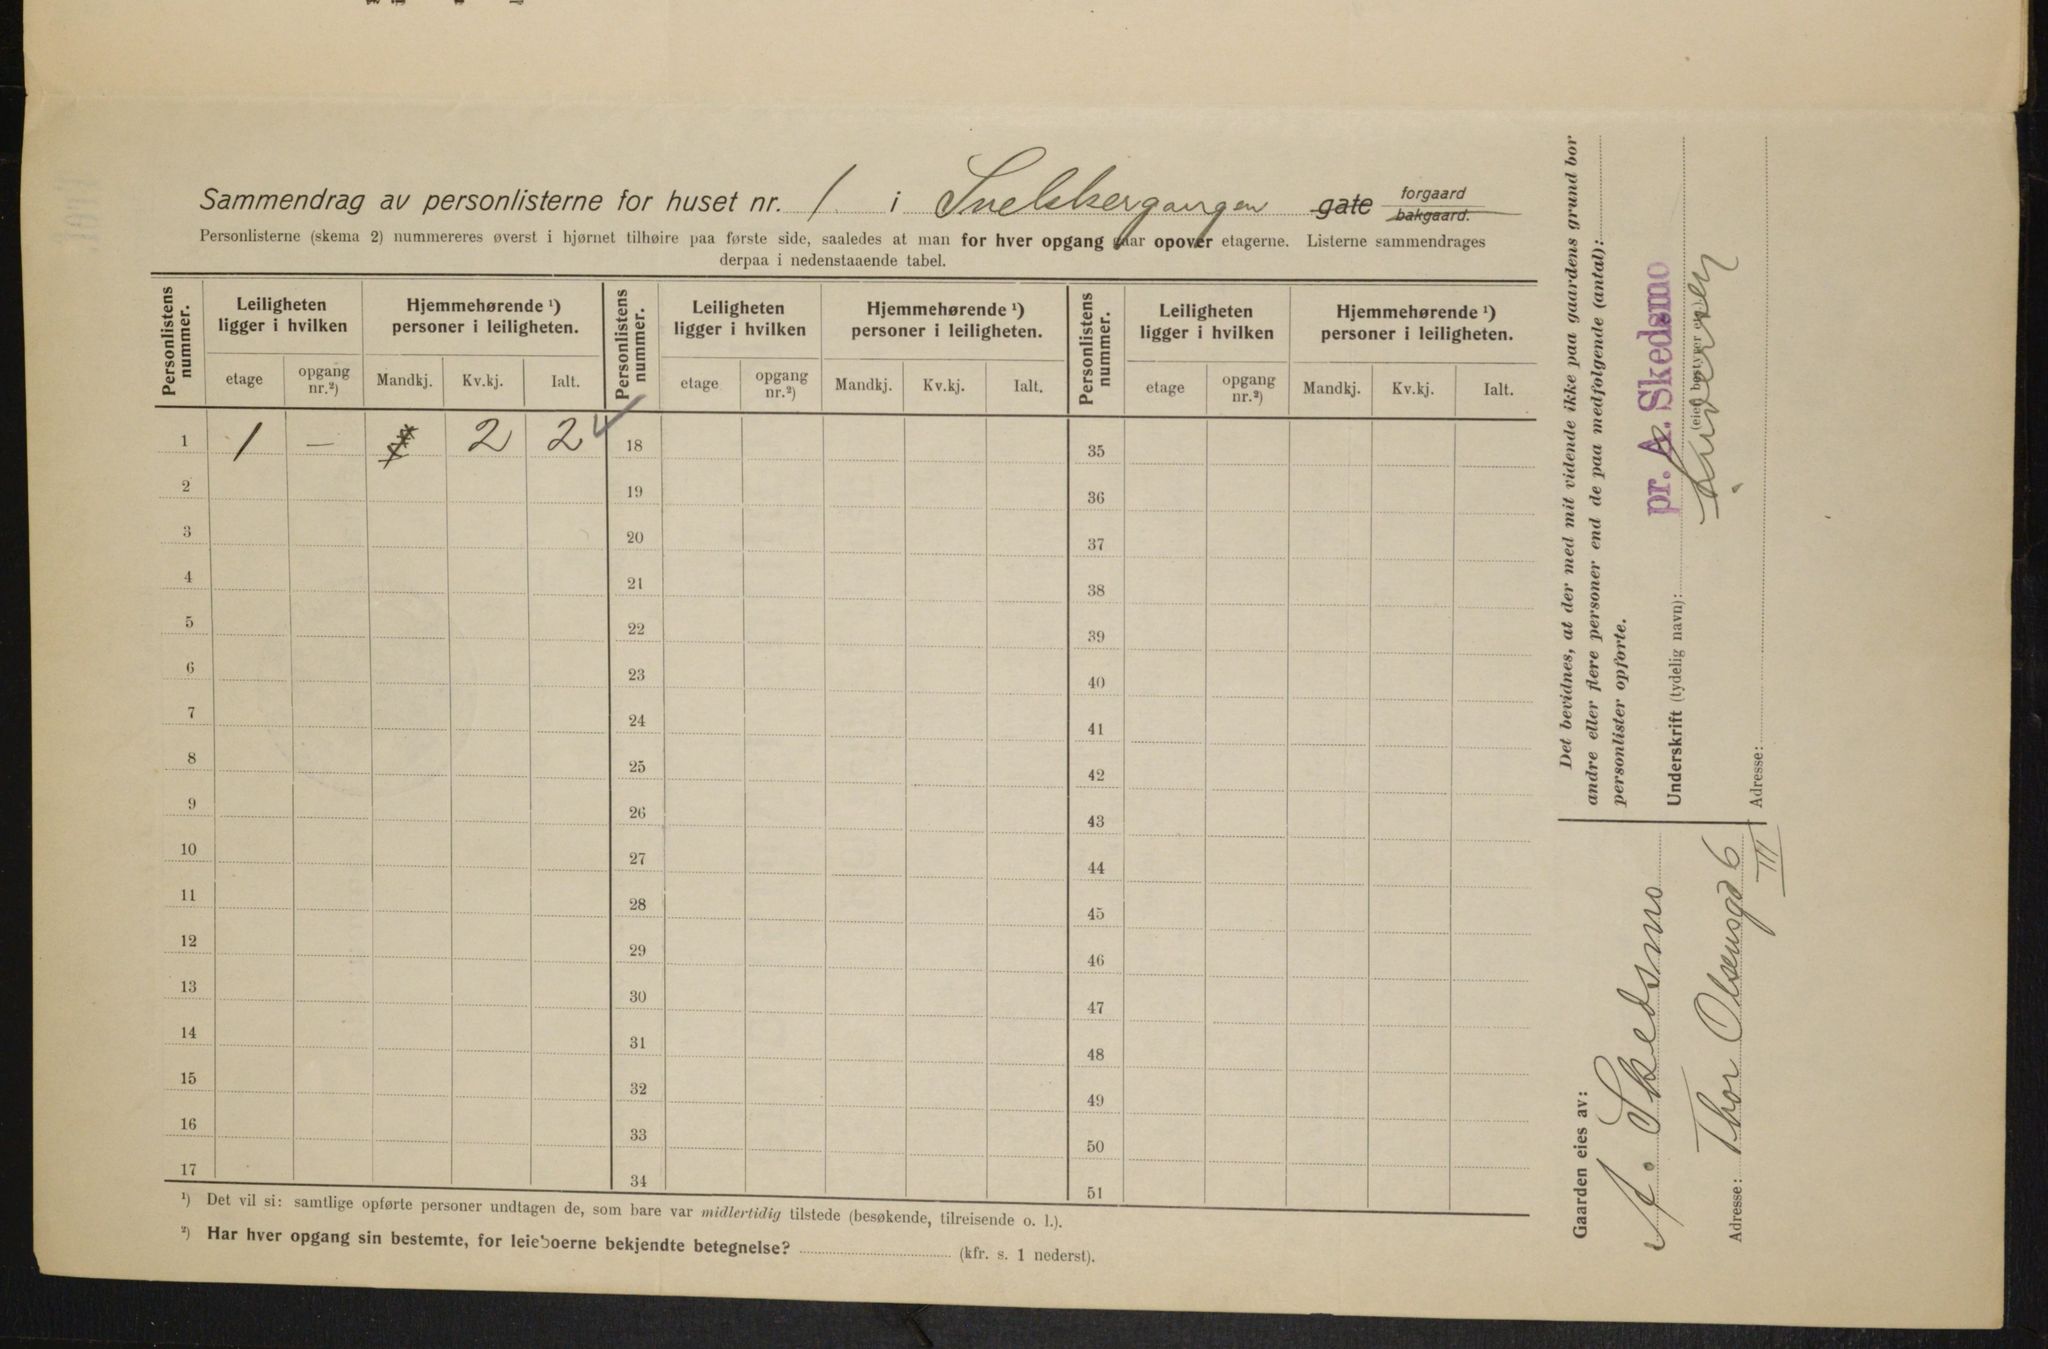 Sammendrag av personlisterne for huset nr. 1 i Snelskergangen gate forgaard bakgaard.
Personlisterne (skema 2) nummereres øverst i hjørnet tilhøire paa første side, saaledes at man for hver opgang gaar opover etagerne. Listerne sammendrages
derpaa i nedenstaaende tabel.
Personlistens nummer. Leiligheten ligger i hvilken Hjemmehørende ¹) personer i leiligheten. Personlistens nummer. Leiligheten ligger i hvilken Hjemmehørende ¹) personer i leiligheten. Personlistens nummer. Leiligheten ligger i hvilken Hjemmehørende ¹) personer i leiligheten.
etage opgang nr.²) Mandkj. Kv.kj. Ialt. etage opgang nr.²) Mandkj. Kv.kj. Ialt. etage opgang nr.²) Mandkj. Kv.kj. Ialt.
1 1 — 2 2 18 35
2 19 36
3 20 37
4 21 38
5 22 39
6 23 40
7 24 41
8 25 42
9 26 43
10 27 44
11 28 45
12 29 46
13 30 47
14 31 48
15 32 49
16 33 50
17 34 51
¹) Det vil si: samtlige opførte personer undtagen de, som bare var midlertidig tilstede (besøkende, tilreisende o. l.).
²) Har hver opgang sin bestemte, for leieboerne bekjendte betegnelse? (kfr. s. 1 nederst).
Gaarden eies av:
A. Skedsmo
Adresse: Thor Olsensgd 6
III
Det bevidnes, at der med mit vidende ikke paa gaardens grund bor
andre eller flere personer end de paa medfølgende (antal):
personlister opførte.
pr. A. Skedsmo
Underskrift (tydelig navn):
(eier, bestyrer
Adresse: